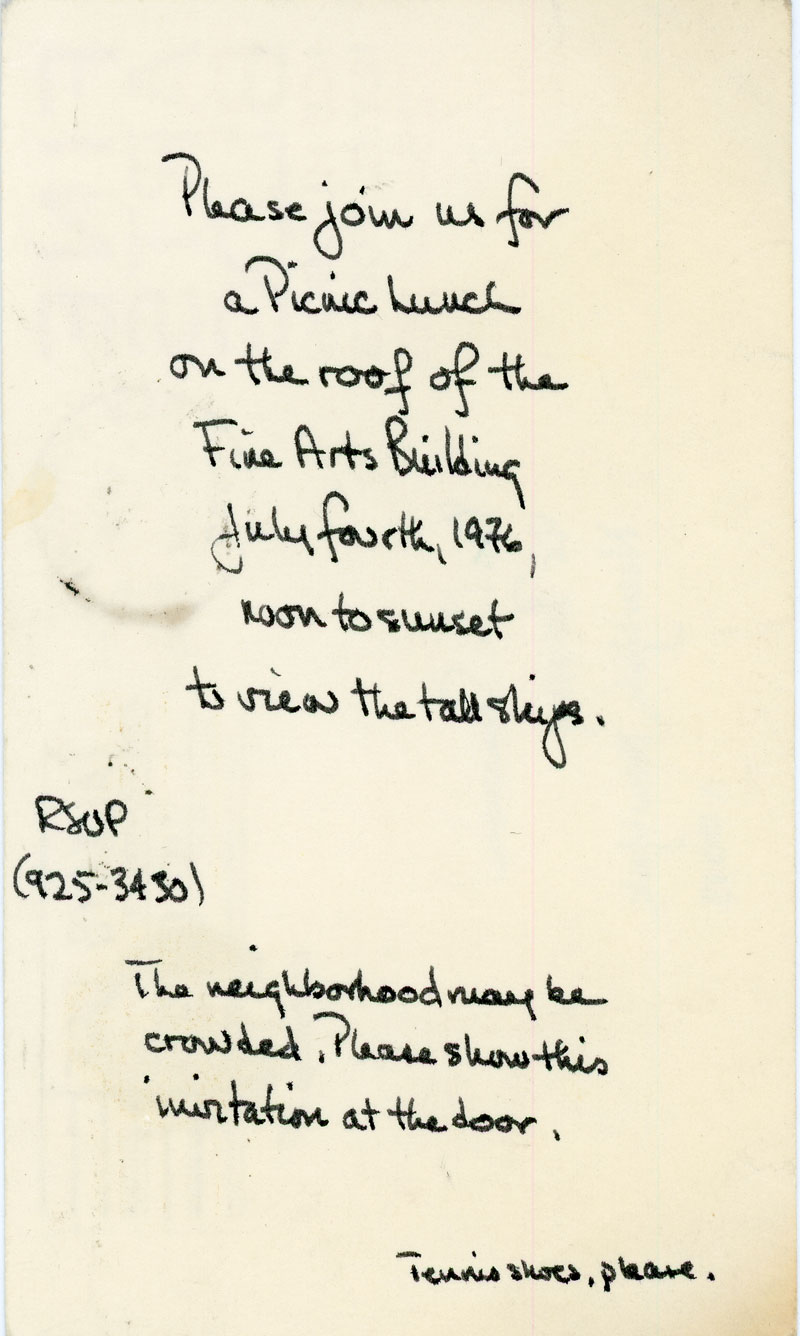 Please join us for
a Picnic Lunch
on the roof of the
Fine Arts Building
July fourth, 1976,
noon to sunset
to view the tall ships.
RSVP
(925-3430)
The neighborhood may be
crowded. Please show this
invitation at the door.
Tennis shoes, please.